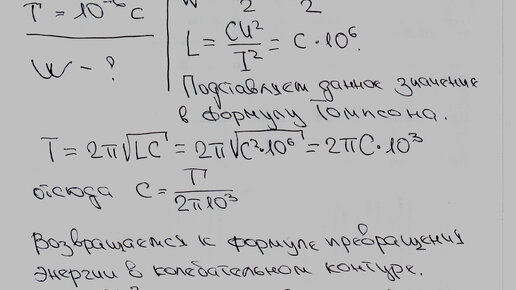 T = 10⁻⁶ c
W 2 2
W - ?
L = CU²/I² = C · 10⁶.
Подставляем данное значение
в формулу Томпсона.
T = 2π√LC = 2π√C²·10⁶ = 2πC·10³
отсюда C = T/2π10³
Возвращаемся к формуле превращения
энергии в колебательном контуре.